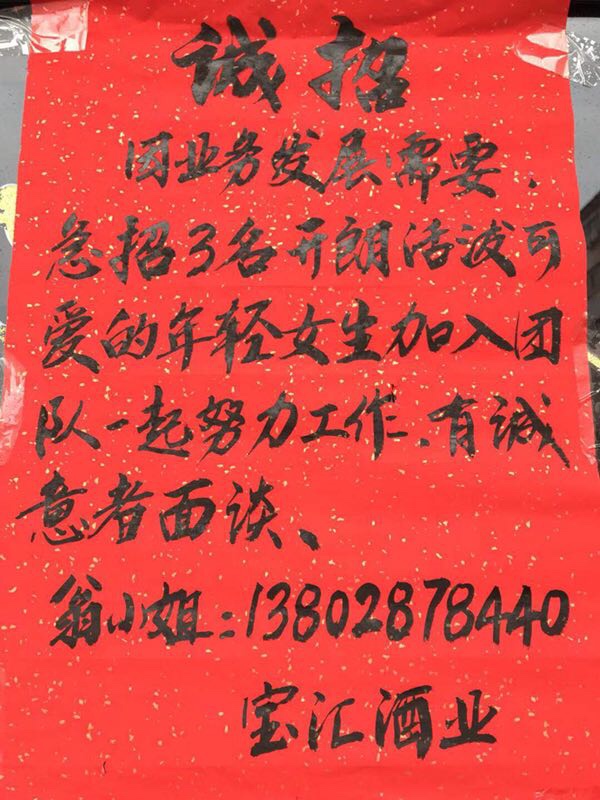 诚招
因业务发展需要，
急招3名开朗活泼可
爱的年轻女生加入团
队一起努力工作、有诚
意者面谈、
翁小姐：13802878440
宝汇酒业